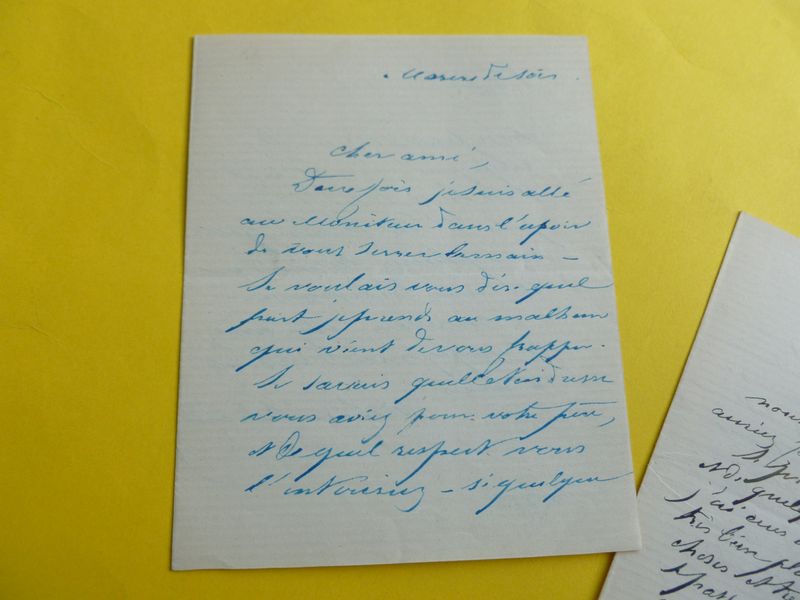 Mercredi soir.
Cher ami,
Deux fois je suis allé
au Moniteur dans l'espoir
de vous serrer la main –
Je voulais vous dire quelle
part je prends au malheur
qui vient de vous frapper.
Je savais quelle tendresse
vous aviez pour votre père,
et de quel respect vous
l'entouriez – si quelque
nous
auriez
et quelque
j'ai
très bien
choses